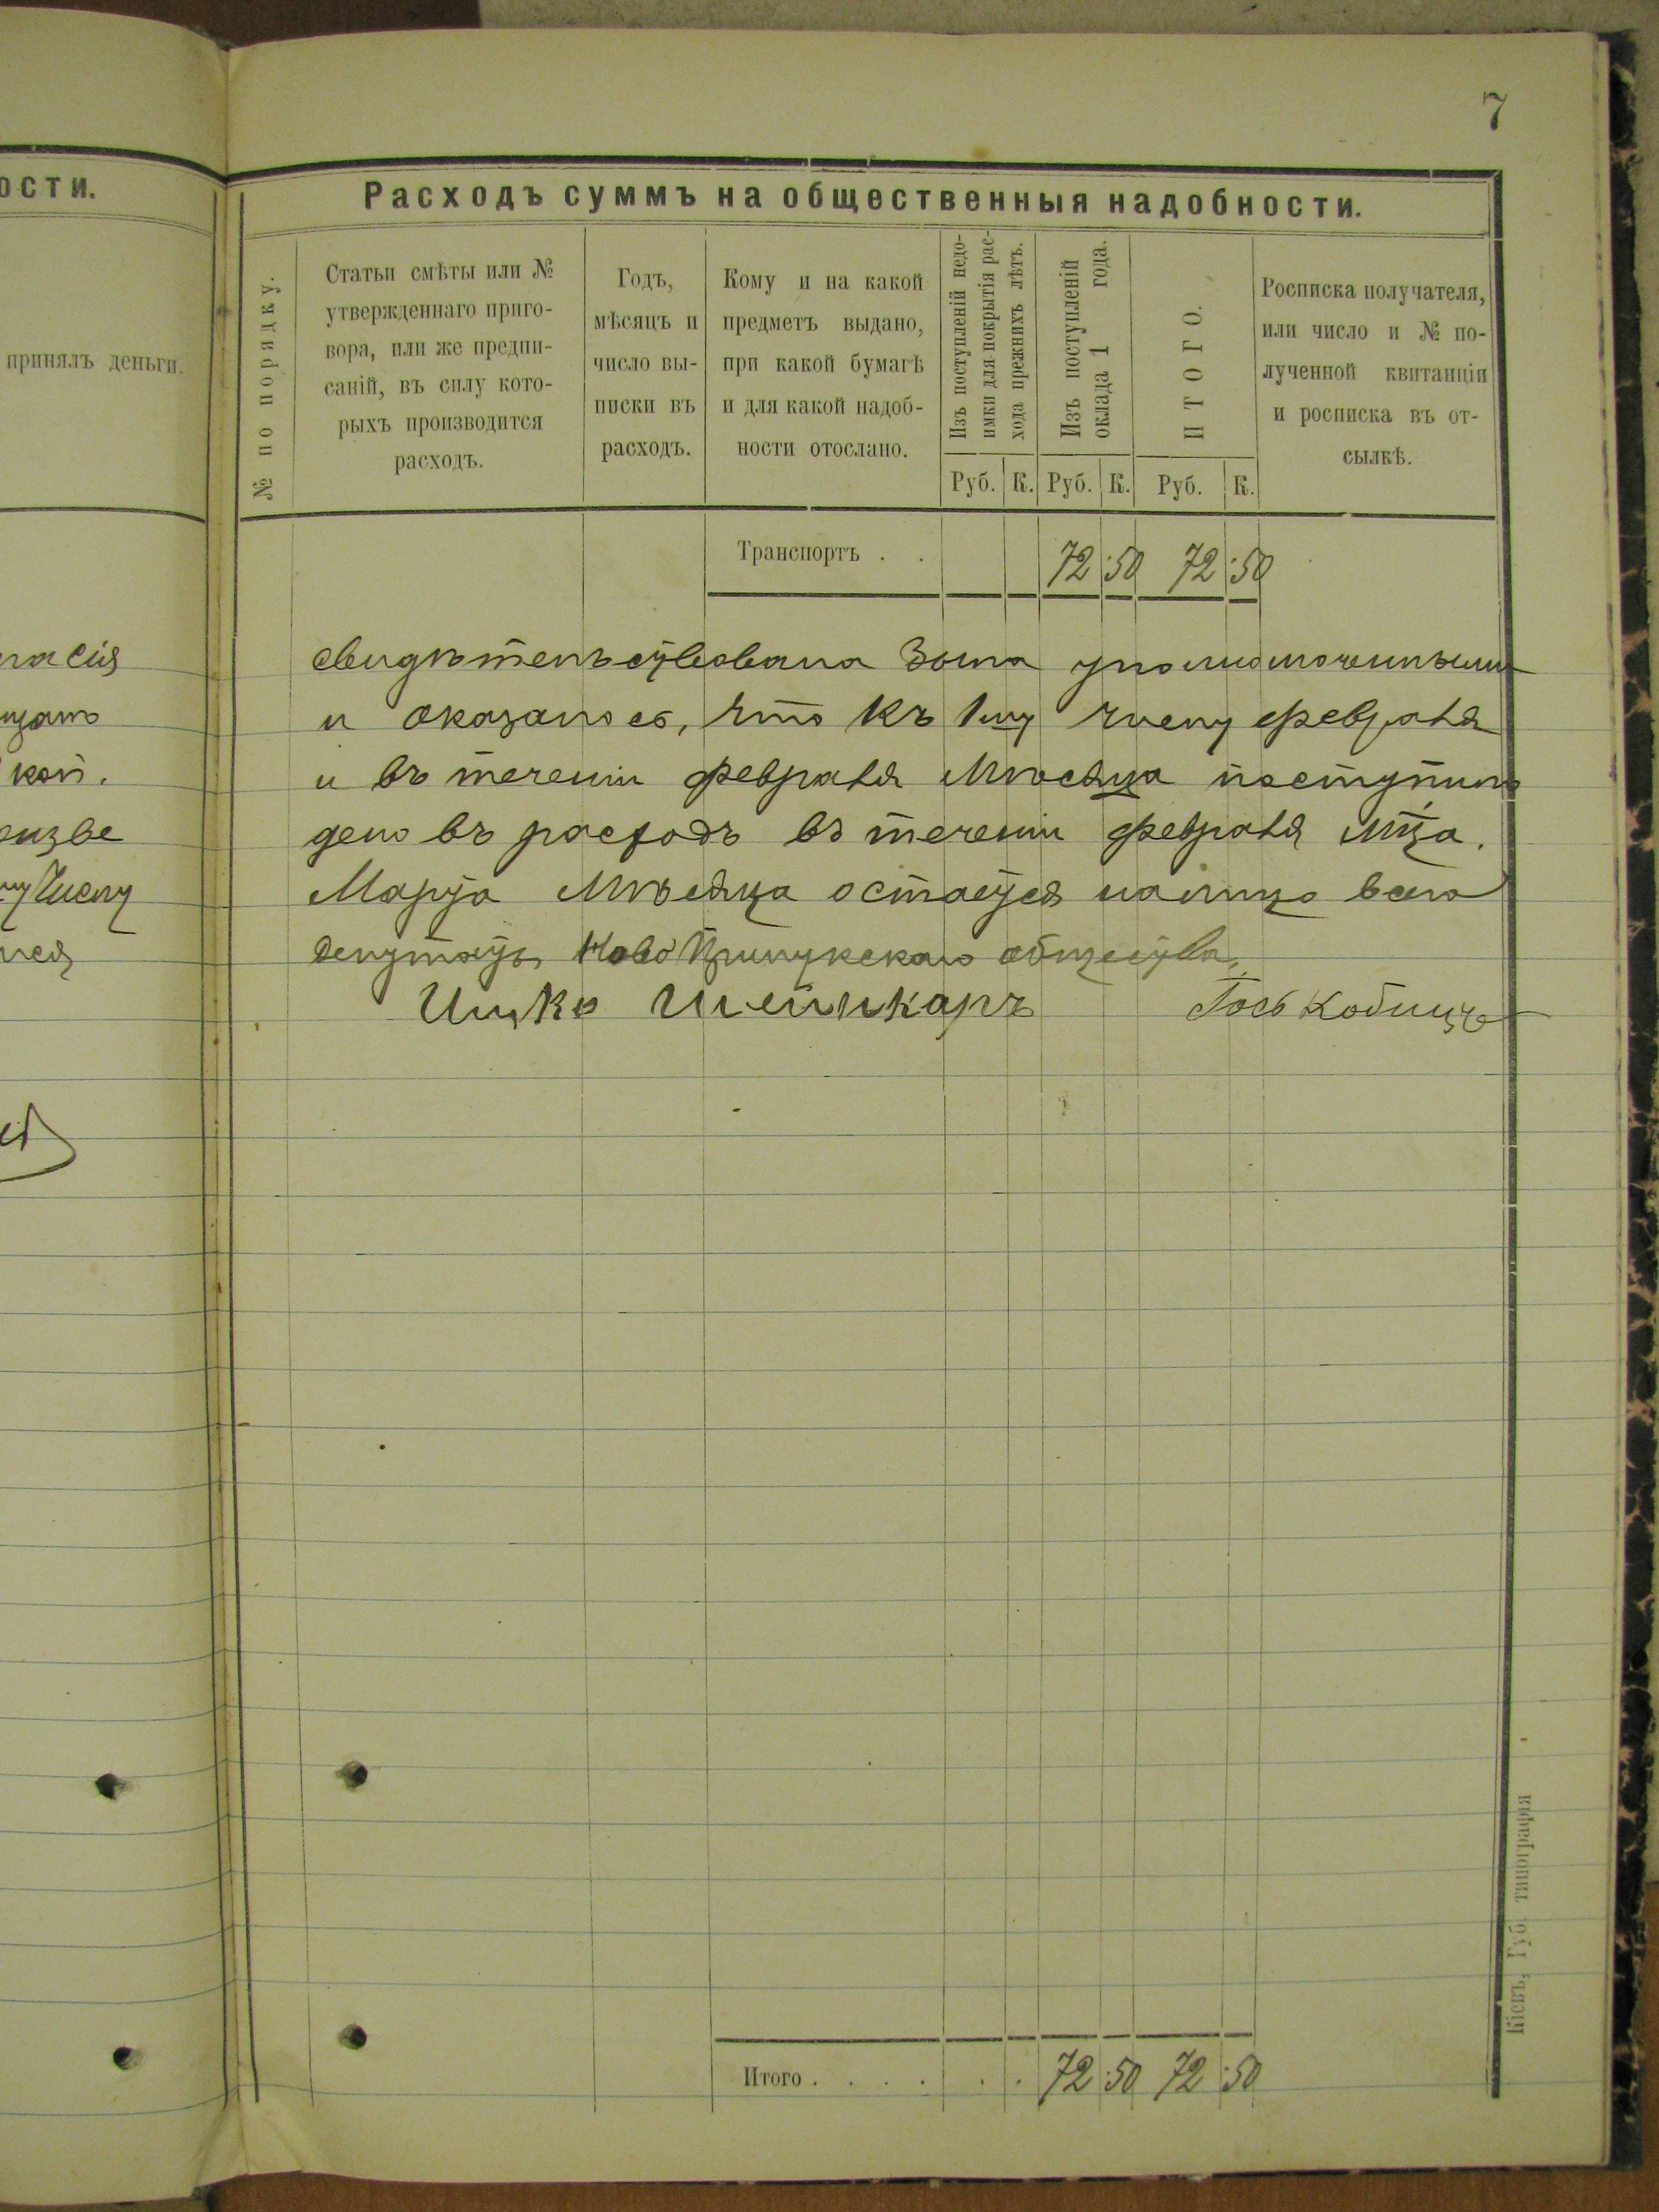 7
ости.
принялъ деньги.
кон.
Расходъ суммъ на общественныя надобности.
№ по порядку.
Статьи смѣты или №
утвержденнаго приго-
вора, или же предпи-
саній, въ силу кото-
рыхъ производится
расходъ.
Годъ,
мѣсяцъ и
число вы-
писки въ
расходъ.
Кому и на какой
предметъ выдано,
при какой бумагѣ
и для какой надоб-
ности отослано.
Изъ поступленій недо-
имки для покрытія рас-
хода прежнихъ лѣтъ.
Изъ поступленій
оклада 1 года.
ИТОГО.
Росписка получателя,
или число и № по-
лученной квитанціи
и росписка въ от-
сылкѣ.
Руб. К. Руб. К. Руб. К.
Транспортъ . . 72 50 72 50
свидѣтельствована уполномоченными
и оказалось, что къ 1му числу февраля
и въ теченіи февраля Мѣсяца поступило
дено въ расходъ въ теченіи февраля Мца.
Марта Мѣсяца остается налицо всего
депутатъ Ново общества
Ицко Шейнкаръ Гось
Итого . . . . . . 72 50 72 50
Кіевъ, Губ. типографія